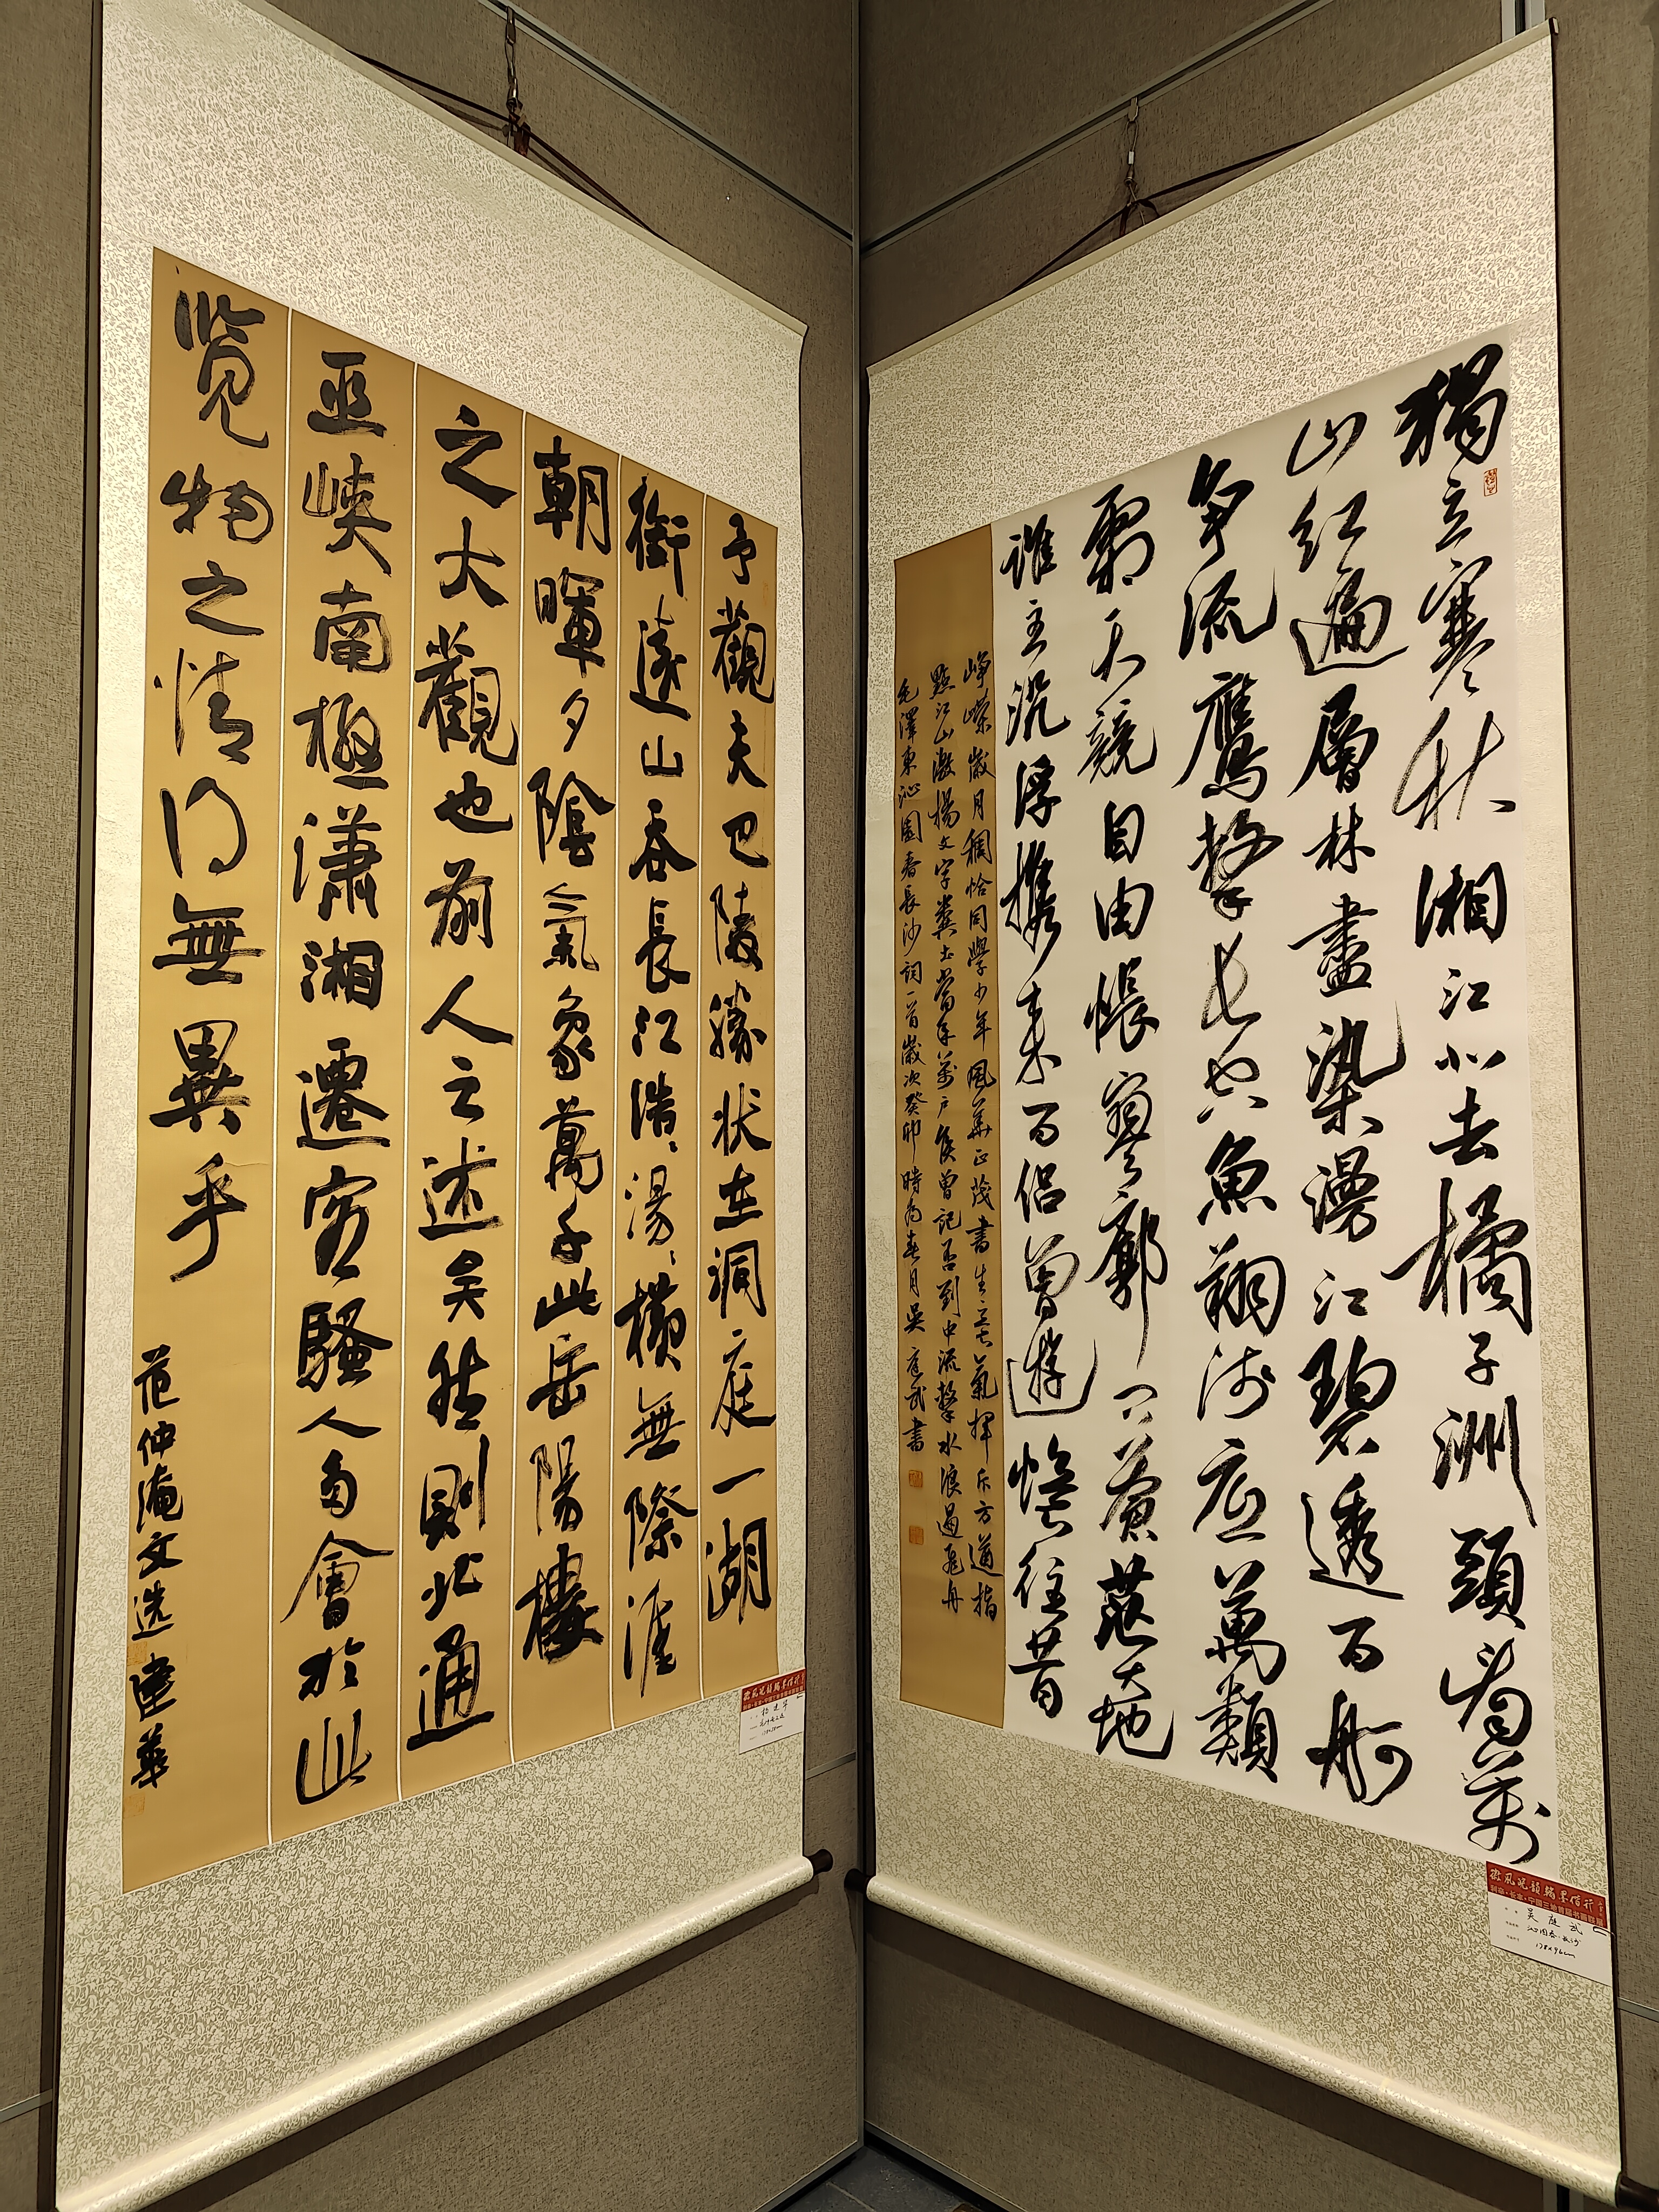 獨立寒秋湘江北去橘子洲頭看萬
山紅遍層林盡染漫江碧透百舸
争流鷹擊長空魚翔淺底萬類
霜天競自由悵寥廓問蒼茫大地
誰主沉浮攜来百侣曾遊憶往昔
崢嶸歲月稠恰同學少年風華正茂書生意氣揮斥方遒指
點江山激揚文字糞土當年萬户侯曾記否到中流擊水浪遏飛舟
毛澤東沁園春長沙詞一首歲次癸卯時為春月吳庭武書
吴庭武
沁园春·长沙
178×96cm
予觀夫巴陵勝状在洞庭一湖
銜遠山吞長江浩〻湯〻横無際涯
朝暉夕陰氣象萬千此岳陽樓
之大觀也前人之述矣然則北通
巫峡南極瀟湘遷客騷人多會於此
览物之情得無異乎
范仲淹文选 建華